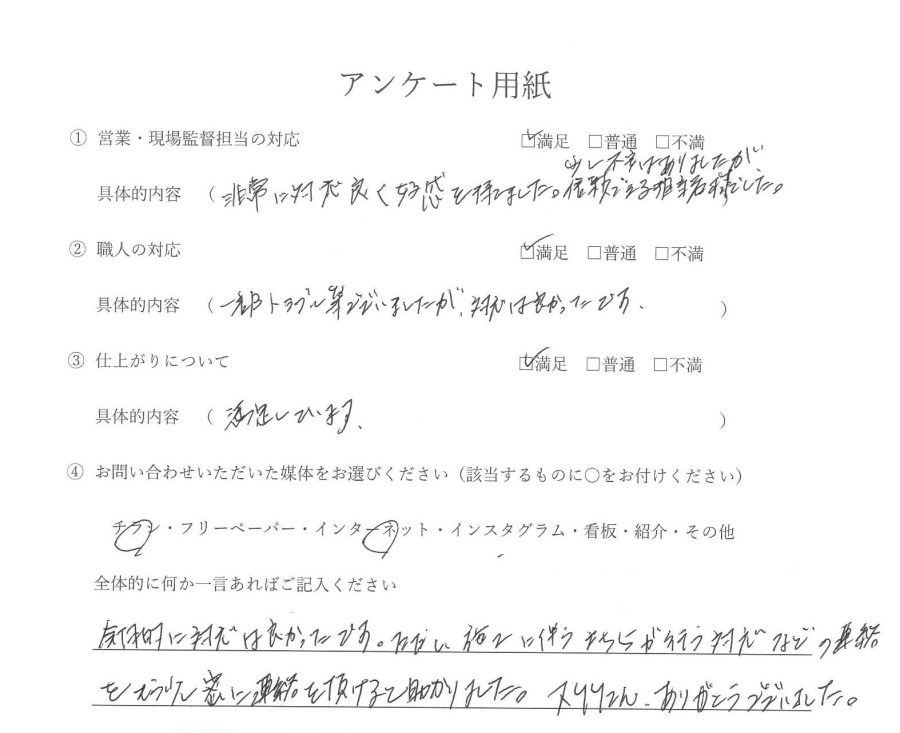 アンケート用紙
① 営業・現場監督担当の対応 ☑満足 □普通 □不満
少し不安はありましたが
具体的内容 （ 非常に対応良く好感を持てました。信頼できる担当者様でした。
② 職人の対応 ☑満足 □普通 □不満
具体的内容 （ 一部トラブル等ございましたが、対応は良かったです. ）
③ 仕上がりについて ☑満足 □普通 □不満
具体的内容 （ 満足しています. ）
④ お問い合わせいただいた媒体をお選びください（該当するものに○をお付けください）
チラシ・フリーペーパー・インターネット・インスタグラム・看板・紹介・その他
全体的に何か一言あればご記入ください
全体的に対応は良かったです。ただし、施工に伴うこちらが行う対応などの連絡
をもう少し密に連絡を頂けると助かりました。 ありがとうございました。